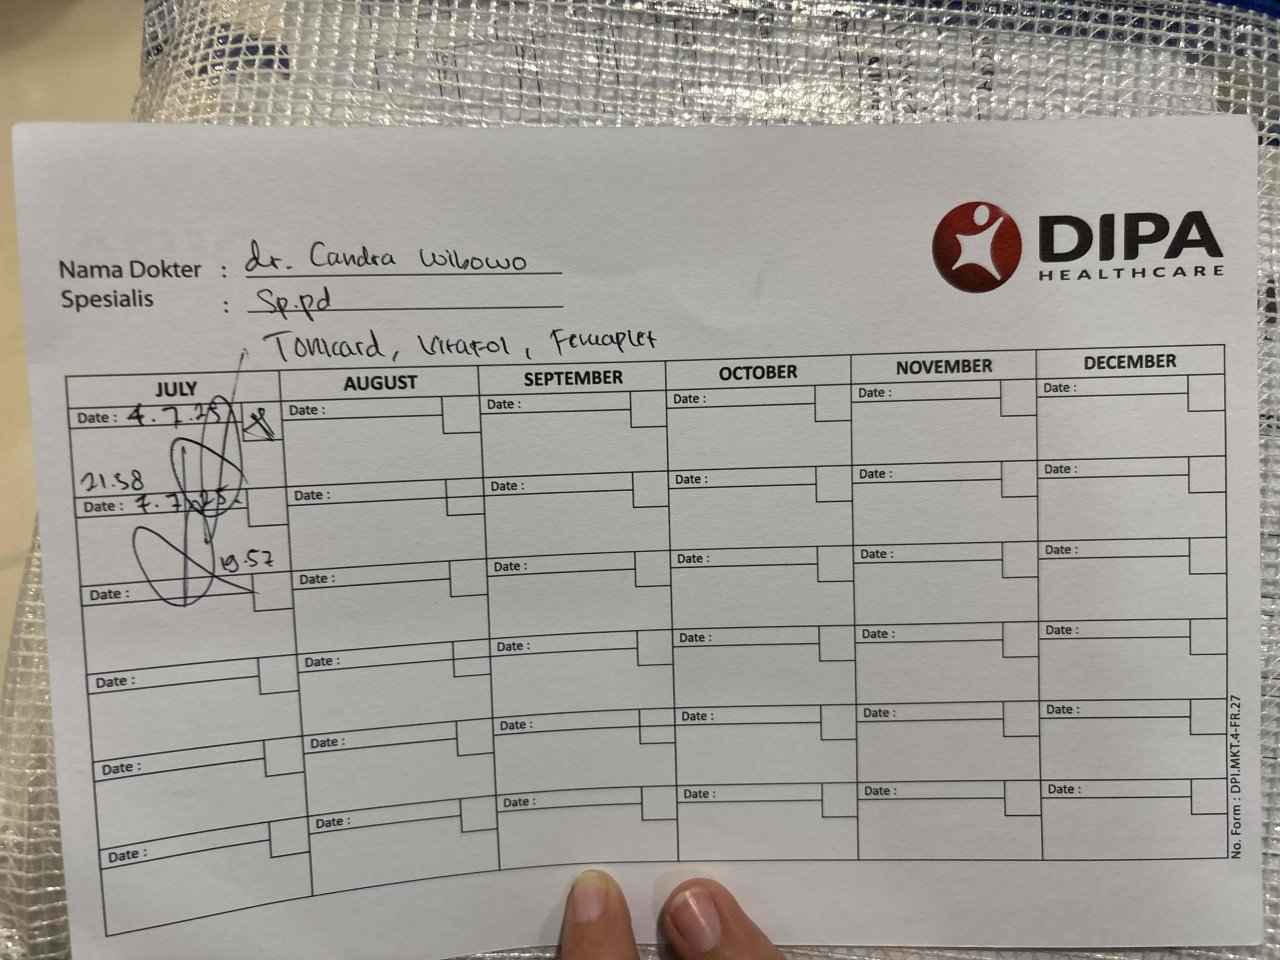 DIPA
HEALTHCARE
Nama Dokter : dr. Candra Wibowo
Spesialis : Sp.pd
Tonicard, Vitafol, Femaplet
JULY AUGUST SEPTEMBER OCTOBER NOVEMBER DECEMBER
Date : 4.7.25 Date : Date : Date : Date : Date :
21.58
Date : 7.7.25 Date : Date : Date : Date : Date :
19.57
Date : Date : Date : Date : Date : Date :
Date : Date : Date : Date : Date : Date :
Date : Date : Date : Date : Date : Date :
Date : Date : Date : Date : Date : Date :
No. Form : DPI.MKT.4-FR.27